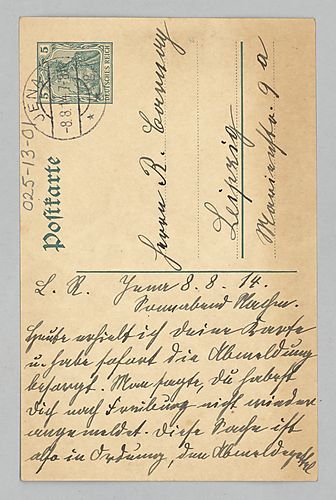 5
5
DEUTSCHES REICH
JENA
-8.8.14.7-8
*
025-13-0
Postkarte
Herrn R. Carnap
Leipzig
Marienstr. 9 a
L. R. Jena 8. 8. 14.
Sonnabend Nachm.
Heute erhielt ich deine Karte
u. habe sofort die Abmeldung
besorgt. Man sagte, du habest
dich nach Freiburg nicht wieder
angemeldet. Diese Sache ist
also in Ordnung, den